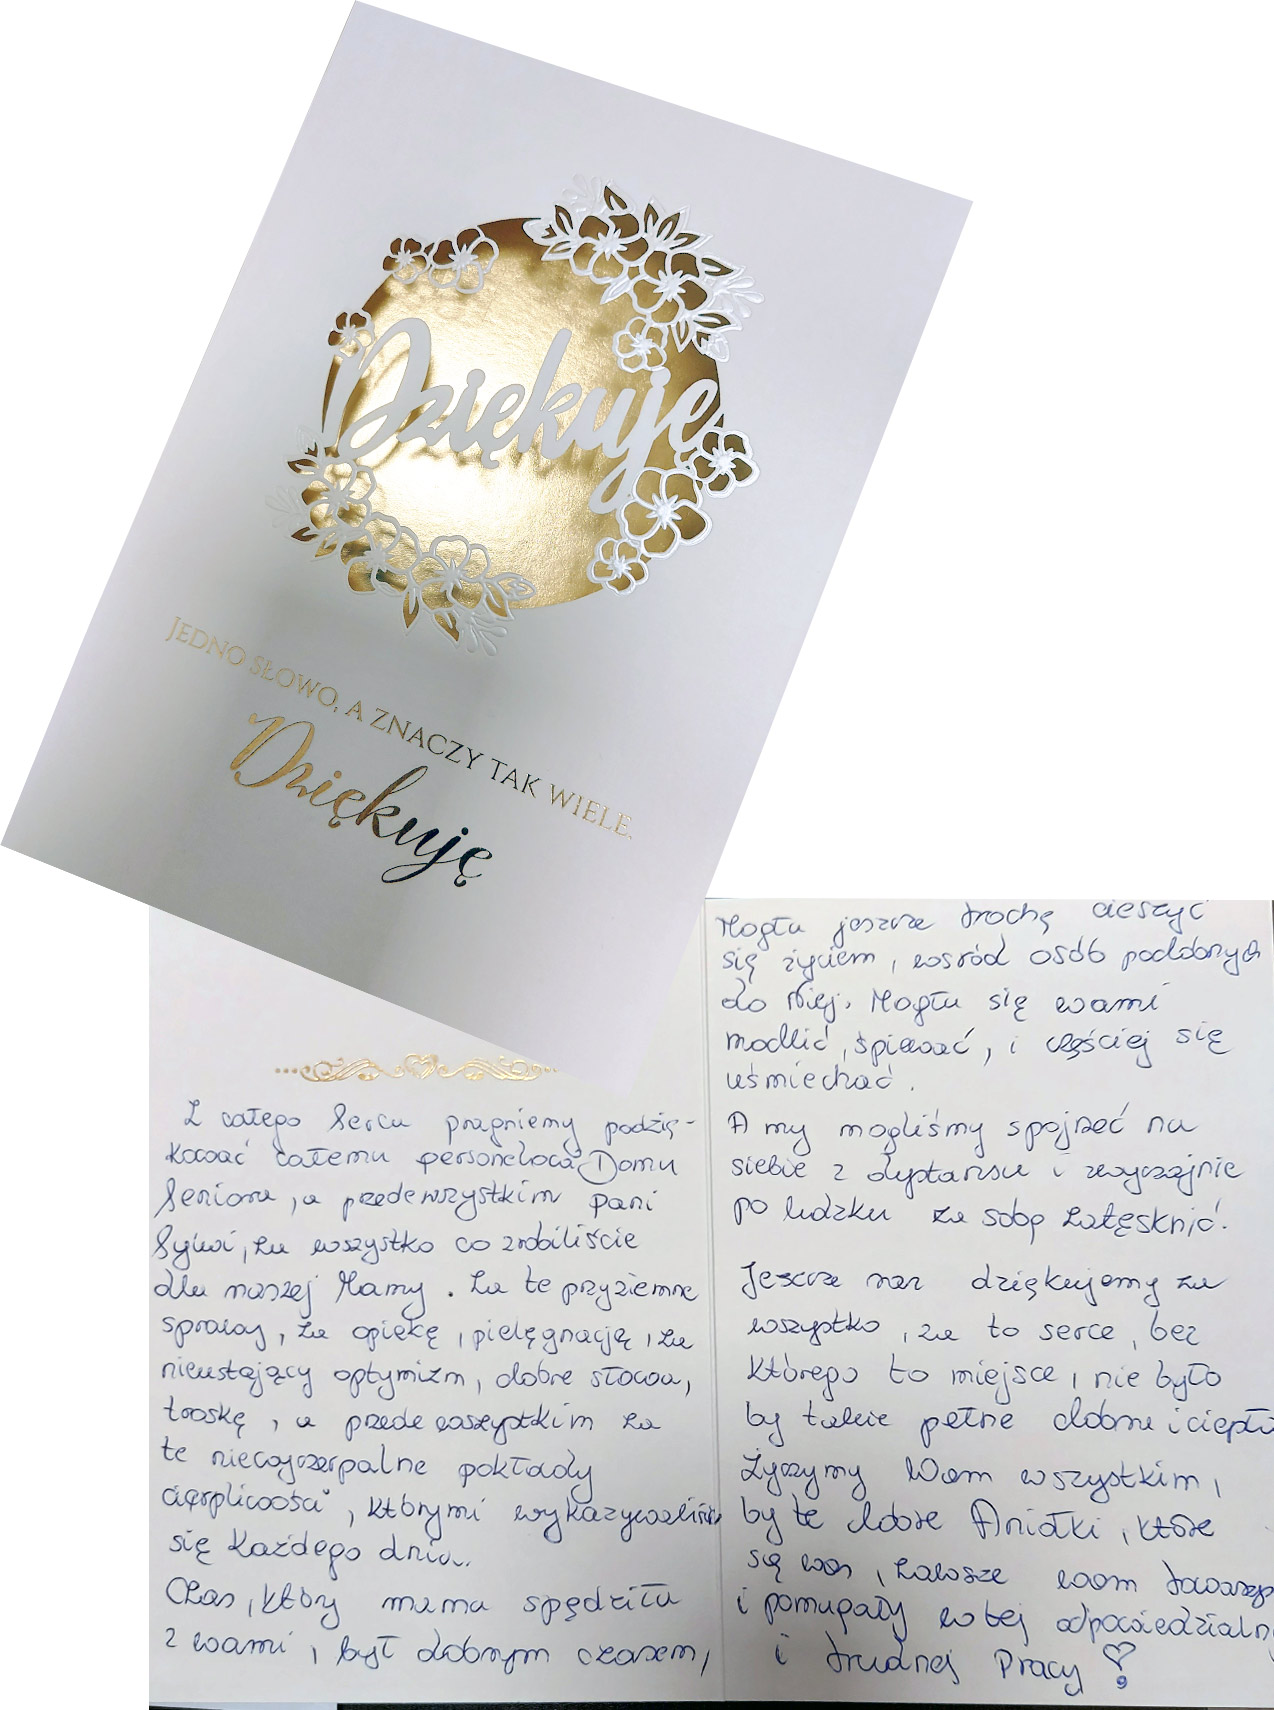 Dziękuję
JEDNO SŁOWO, A ZNACZY TAK WIELE.
Dziękuję
Z całego Serca pragniemy podzię-
kować całemu personelowi Domu
Seniora, a przede wszystkim Pani
Sylwi, za wszystko co zrobiliście
dla naszej Mamy. Za te przyziemne
sprawy, za opiekę, pielęgnację, za
nieustający optymizm, dobre słowa,
troskę, a przede wszystkim za
te niewyczerpalne pokłady
cierpliwości, którymi wykazywaliście
się każdego dnia.
Czas, który mama spędziła
z wami, był dobrym czasem,
Mogła jeszcze trochę cieszyć
się życiem, wśród osób podobnych
do Niej. Mogła się wami
modlić, śpiewać, i częściej się
uśmiechać.
A my mogliśmy spojrzeć na
siebie z dystansu i zwyczajnie
po ludzku za sobą zatęsknić.
Jeszcze raz dziękujemy za
wszystko, za to serce, bez
którego to miejsce, nie było
by takie pełne dobra i ciepła
Życzymy Wam wszystkim,
by te dobre Aniołki, które
są was, zawsze wam towarzys
i pomagały w tej odpowiedzialn
i trudnej Pracy